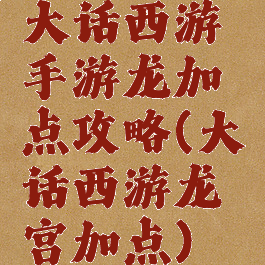 大话西游
手游龙加
点攻略(大
话西游龙
宫加点)